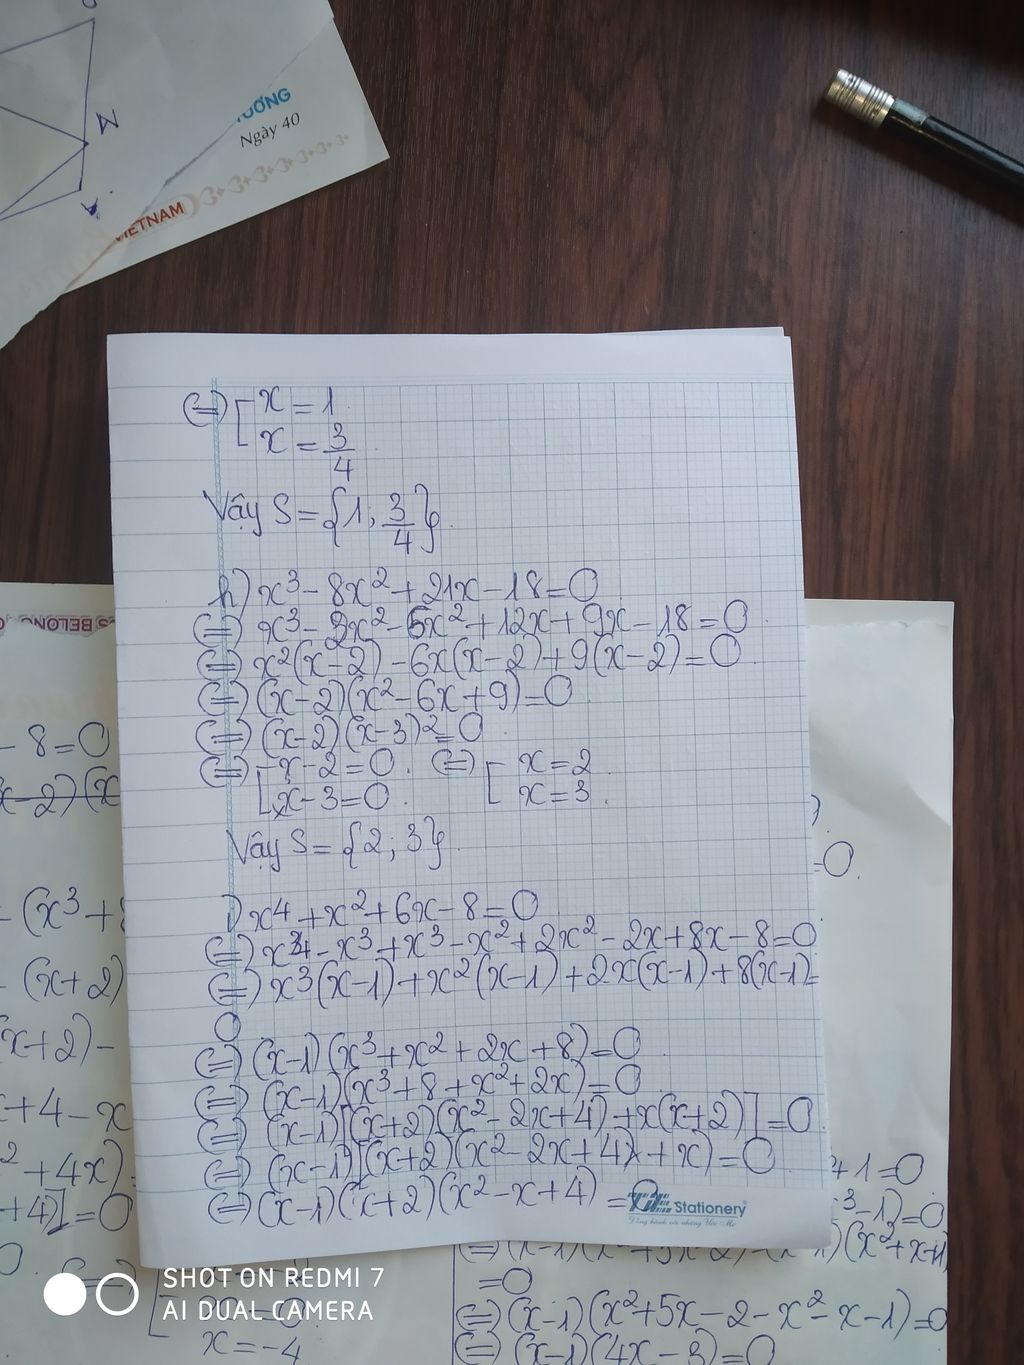 ƯƠNG
Ngày 40
VIETNAM
N
(=) [ x = 1.
x = 3/4.
Vậy S = {1; 3/4}.
h) x³ - 8x² + 21x - 18 = 0
(=) x³ - 2x² - 6x² + 12x + 9x - 18 = 0
(=) x²(x-2) - 6x(x-2) + 9(x-2) = 0
(=) (x-2)(x² - 6x + 9) = 0
(=) (x-2)(x-3)² = 0
(=) [ x - 2 = 0. (=) [ x = 2
x - 3 = 0. x = 3.
Vậy S = {2; 3}.
i) x⁴ + x² + 6x - 8 = 0
(=) x⁴ - x³ + x³ - x² + 2x² - 2x + 8x - 8 = 0
(=) x³(x-1) + x²(x-1) + 2x(x-1) + 8(x-1) =
0
(=) (x-1)(x³ + x² + 2x + 8) = 0
(=) (x-1)(x³ + 8 + x² + 2x) = 0
(=) (x-1)[(x+2)(x² - 2x + 4) + x(x+2)] = 0
(=) (x-1)(x+2)(x² - 2x + 4 + x) = 0
(=) (x-1)(x+2)(x² - x + 4) = 0
Stationery
S BELONG
- 8 = 0
x-2)(x
- (x³ + 8
- (x+2)
(x+2) -
x + 4 - x
² + 4x)
+4)] = 0
x = -4
= 0.
+ 1 = 0
³ - 1) = 0
= 0
(=) (x-1)(x² + 5x - 2 - x² - x - 1) = 0
(=) (x-1)(4x - 3) = 0
SHOT ON REDMI 7
AI DUAL CAMERA